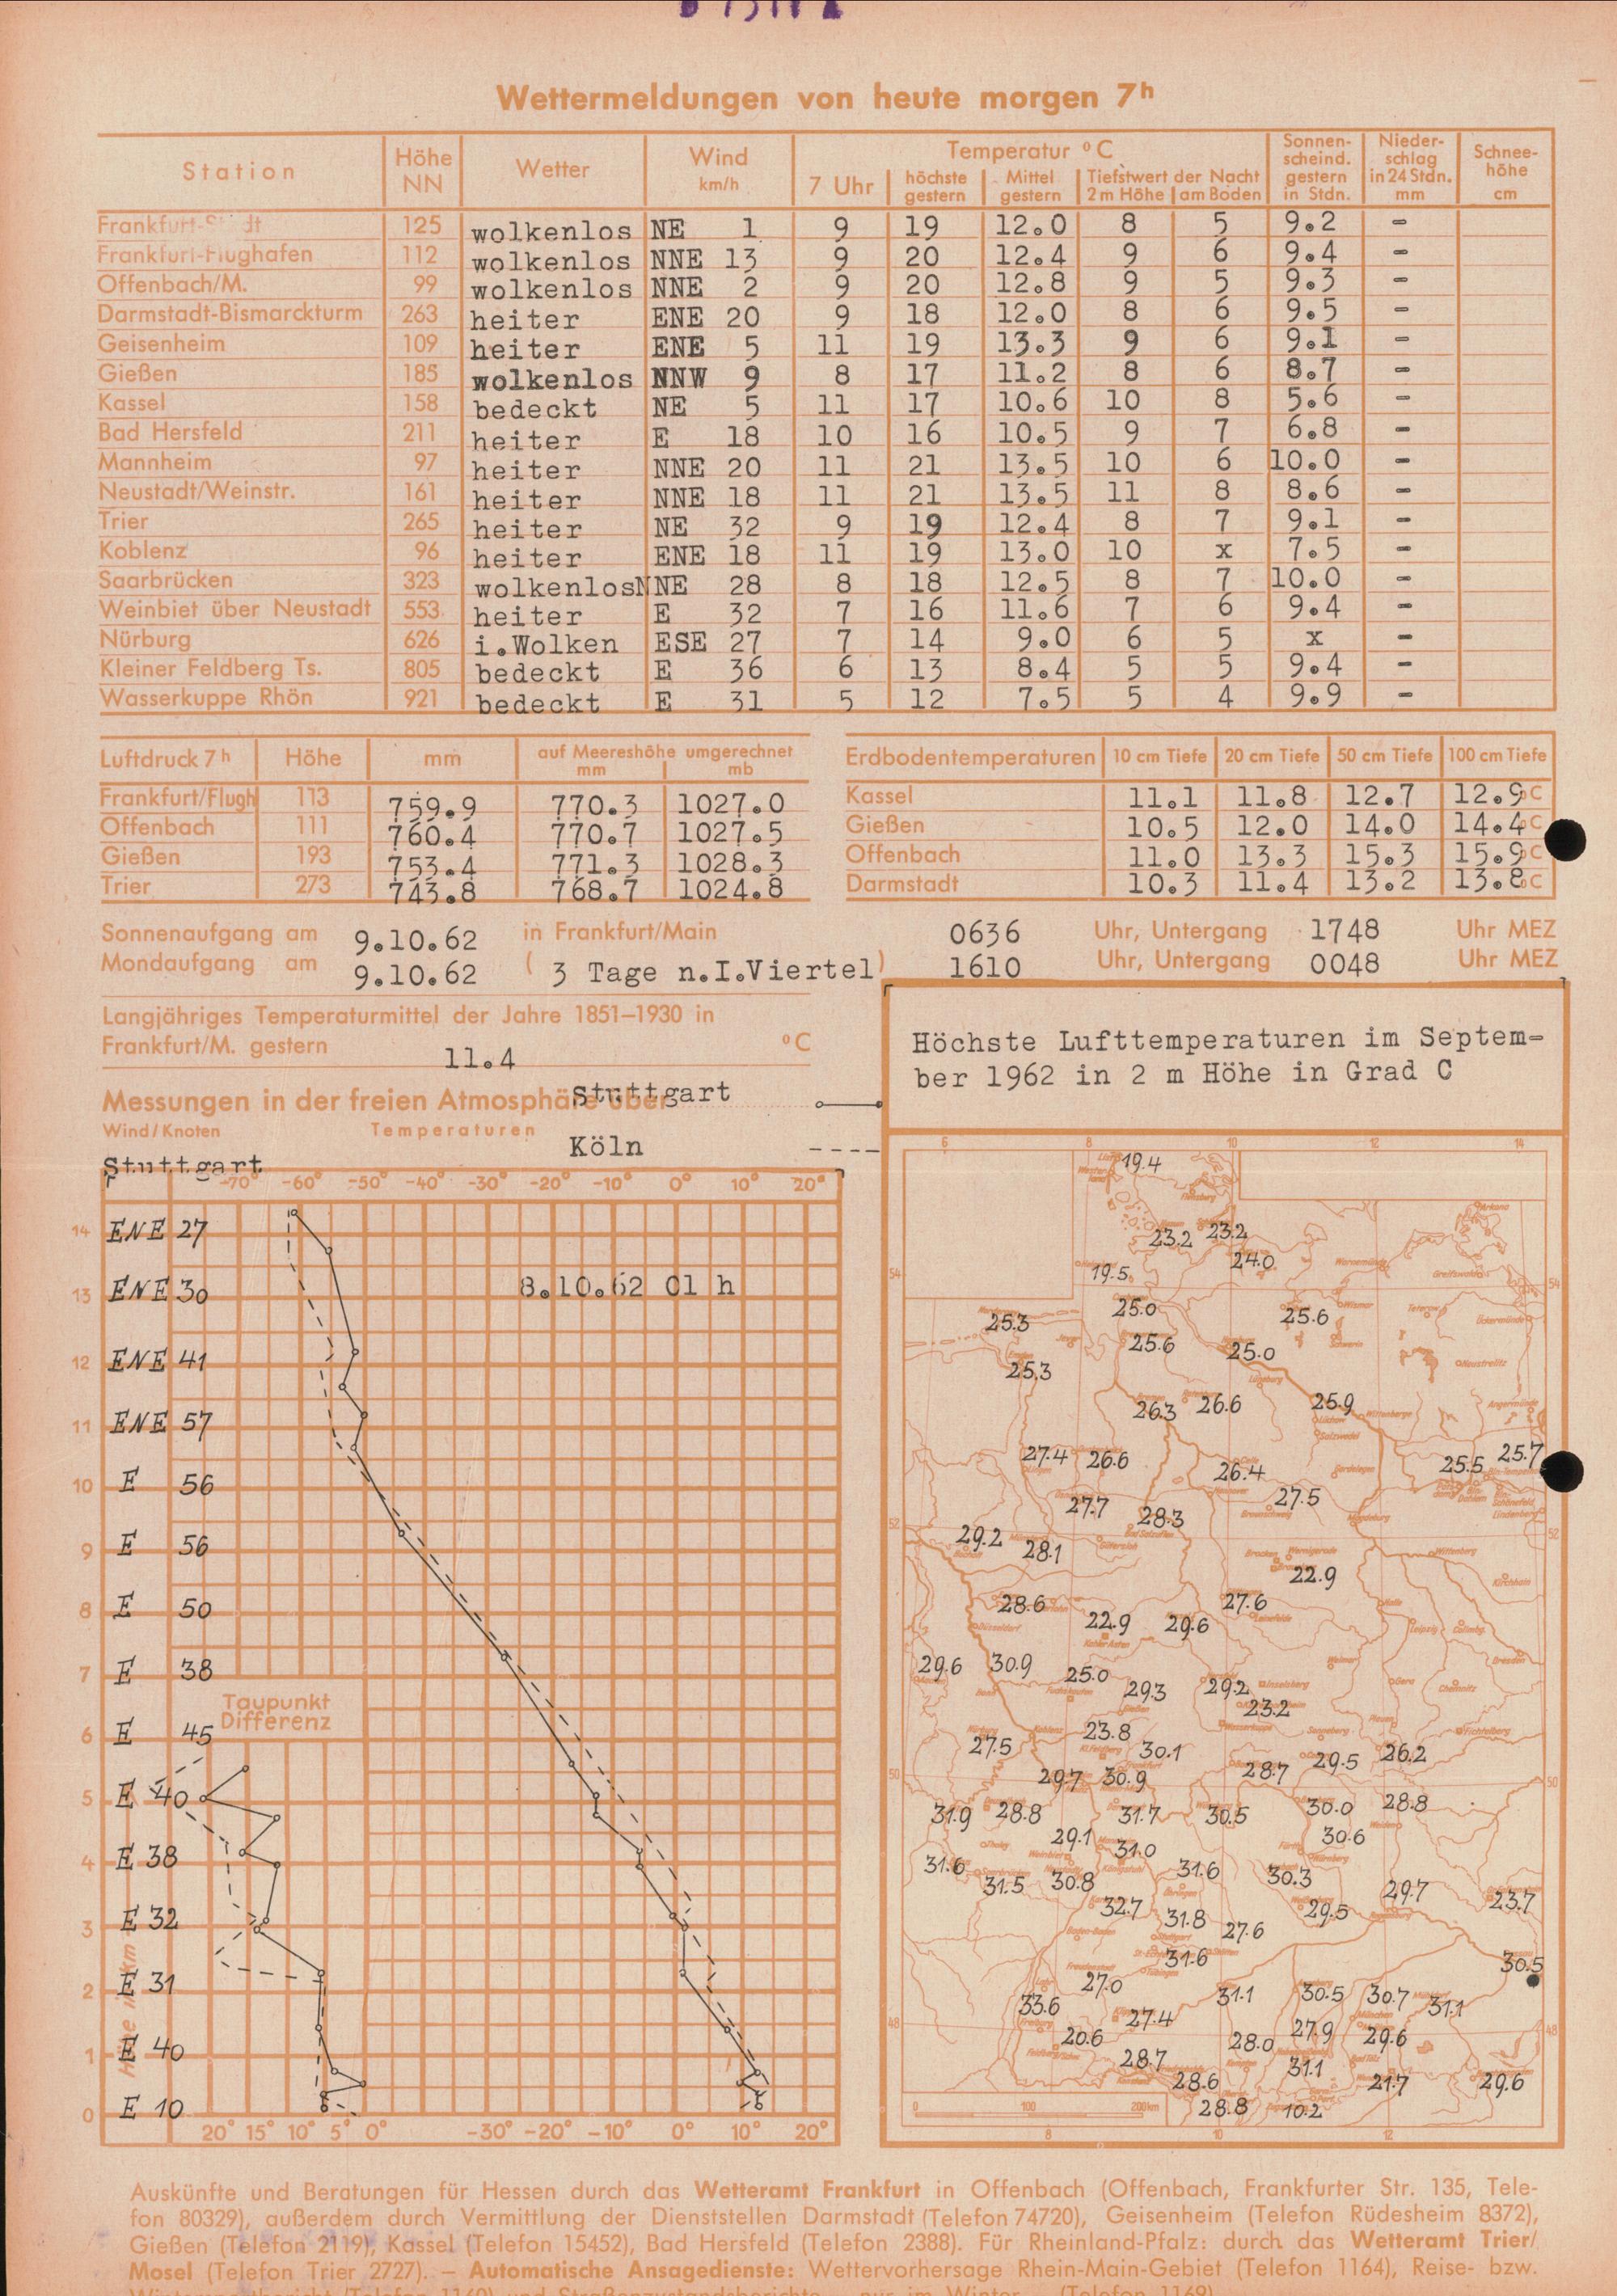 Wettermeldungen von heute morgen 7h
Station Höhe NN Wetter Wind km/h Temperatur °C 7 Uhr höchste gestern Mittel gestern Tiefstwert der Nacht 2 m Höhe am Boden Sonnen-scheind. gestern in Stdn. Nieder-schlag in 24 Stdn. mm Schnee-höhe cm
Frankfurt-Stadt 125 wolkenlos NE 1 9 19 12.0 8 5 9.2 -
Frankfurt-Flughafen 112 wolkenlos NNE 13 9 20 12.4 9 6 9.4 -
Offenbach/M. 99 wolkenlos NNE 2 9 20 12.8 9 5 9.3 -
Darmstadt-Bismarckturm 263 heiter ENE 20 9 18 12.0 8 6 9.5 -
Geisenheim 109 heiter ENE 5 11 19 13.3 9 6 9.1 -
Gießen 185 wolkenlos NNW 9 8 17 11.2 8 6 8.7 -
Kassel 158 bedeckt NE 5 11 17 10.6 10 8 5.6 -
Bad Hersfeld 211 heiter E 18 10 16 10.5 9 7 6.8 -
Mannheim 97 heiter NNE 20 11 21 13.5 10 6 10.0 -
Neustadt/Weinstr. 161 heiter NNE 18 11 21 13.5 11 8 8.6 -
Trier 265 heiter NE 32 9 19 12.4 8 7 9.1 -
Koblenz 96 heiter ENE 18 11 19 13.0 10 x 7.5 -
Saarbrücken 323 wolkenlos NNE 28 8 18 12.5 8 7 10.0 -
Weinbiet über Neustadt 553 heiter E 32 7 16 11.6 7 6 9.4 -
Nürburg 626 i.Wolken ESE 27 7 14 9.0 6 5 x -
Kleiner Feldberg Ts. 805 bedeckt E 36 6 13 8.4 5 5 9.4 -
Wasserkuppe Rhön 921 bedeckt E 31 5 12 7.5 5 4 9.9 -
Luftdruck 7h Höhe mm auf Meereshöhe umgerechnet mm mb
Frankfurt/Flugh 113 759.9 770.3 1027.0
Offenbach 111 760.4 770.7 1027.5
Gießen 193 753.4 771.3 1028.3
Trier 273 743.8 768.7 1024.8
Erdbodentemperaturen 10 cm Tiefe 20 cm Tiefe 50 cm Tiefe 100 cm Tiefe
Kassel 11.1 11.8 12.7 12.9°C
Gießen 10.5 12.0 14.0 14.4°C
Offenbach 11.0 13.3 15.3 15.9°C
Darmstadt 10.3 11.4 13.2 13.8°C
Sonnenaufgang am 9.10.62 in Frankfurt/Main 0636 Uhr, Untergang 1748 Uhr MEZ
Mondaufgang am 9.10.62 ( 3 Tage n.I.Viertel) 1610 Uhr, Untergang 0048 Uhr MEZ
Langjähriges Temperaturmittel der Jahre 1851–1930 in
Frankfurt/M. gestern 11.4 °C
Messungen in der freien Atmosphäre über Stuttgart
Wind/Knoten Temperaturen Köln ----
Stuttgart
-70° -60° -50° -40° -30° -20° -10° 0° 10° 20°
14 ENE 27
13 ENE 30 8.10.62 01 h
12 ENE 41
11 ENE 57
10 E 56
9 E 56
8 E 50
7 E 38
Taupunkt
Differenz
6 E 45
5 E 40
4 E 38
3 E 32
2 E 31
1 E 40
0 E 10
Höhe in km
20° 15° 10° 5° 0° -30° -20° -10° 0° 10° 20°
Höchste Lufttemperaturen im Septem-
ber 1962 in 2 m Höhe in Grad C
6 8 10 12 14
19.4
23.2 23.2
24.0
54 19.5 54
25.0
25.3 25.6
25.6 25.0
25.3
26.3 26.6 25.9
27.4 26.6 26.4 25.5 25.7
27.7 28.3 27.5
52 29.2 28.1 52
22.9
28.6 22.9 29.6 27.6
29.6 30.9 25.0 29.3 29.2
23.2
27.5 23.8 30.1 29.5 26.2
50 29.7 30.9 28.7 50
31.9 28.8 31.7 30.5 30.0 28.8
29.1 31.0 30.6
31.6 31.5 30.8 31.6 30.3
32.7 31.8 27.6 29.5 29.7 23.7
31.6 30.5
27.0
33.6 27.4 31.1 30.5 30.7 31.1
48 20.6 28.0 27.9 29.6 48
28.7 31.1
28.6 21.7 29.6
28.8 10.2
0 100 200km
8 10 12
Auskünfte und Beratungen für Hessen durch das Wetteramt Frankfurt in Offenbach (Offenbach, Frankfurter Str. 135, Tele-
fon 80329), außerdem durch Vermittlung der Dienststellen Darmstadt (Telefon 74720), Geisenheim (Telefon Rüdesheim 8372),
Gießen (Telefon 2119), Kassel (Telefon 15452), Bad Hersfeld (Telefon 2388). Für Rheinland-Pfalz: durch das Wetteramt Trier/
Mosel (Telefon Trier 2727). – Automatische Ansagedienste: Wettervorhersage Rhein-Main-Gebiet (Telefon 1164), Reise- bzw.
Wintersportbericht (Telefon 1160) und Straßenzustandsberichte – nur im Winter – (Telefon 1169)